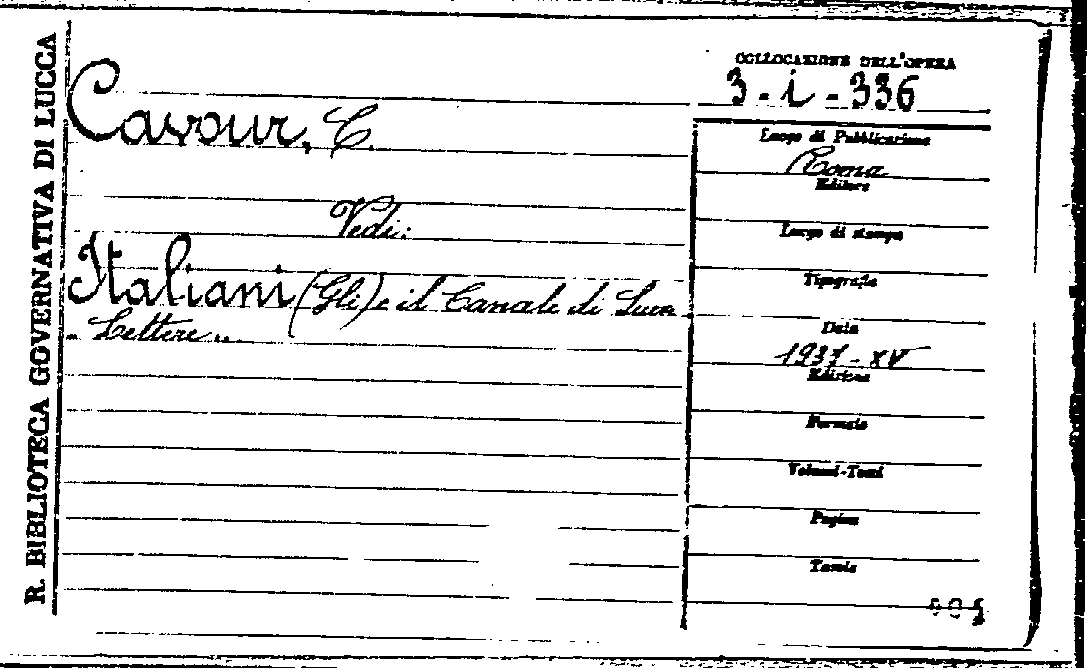 R. BIBLIOTECA GOVERNATIVA DI LUCCA
COLLOCAZIONE DELL'OPERA
3 - i - 336
Cavour, C.
Vedi:
Italiani (Gli) e il Canale di Suez
- Lettere...
Luogo di Pubblicazione
Roma
Editore
Luogo di stampa
Tipografia
Data
1937 - XV
Edizione
Formato
Volumi-Tomi
Pagine
Tavole